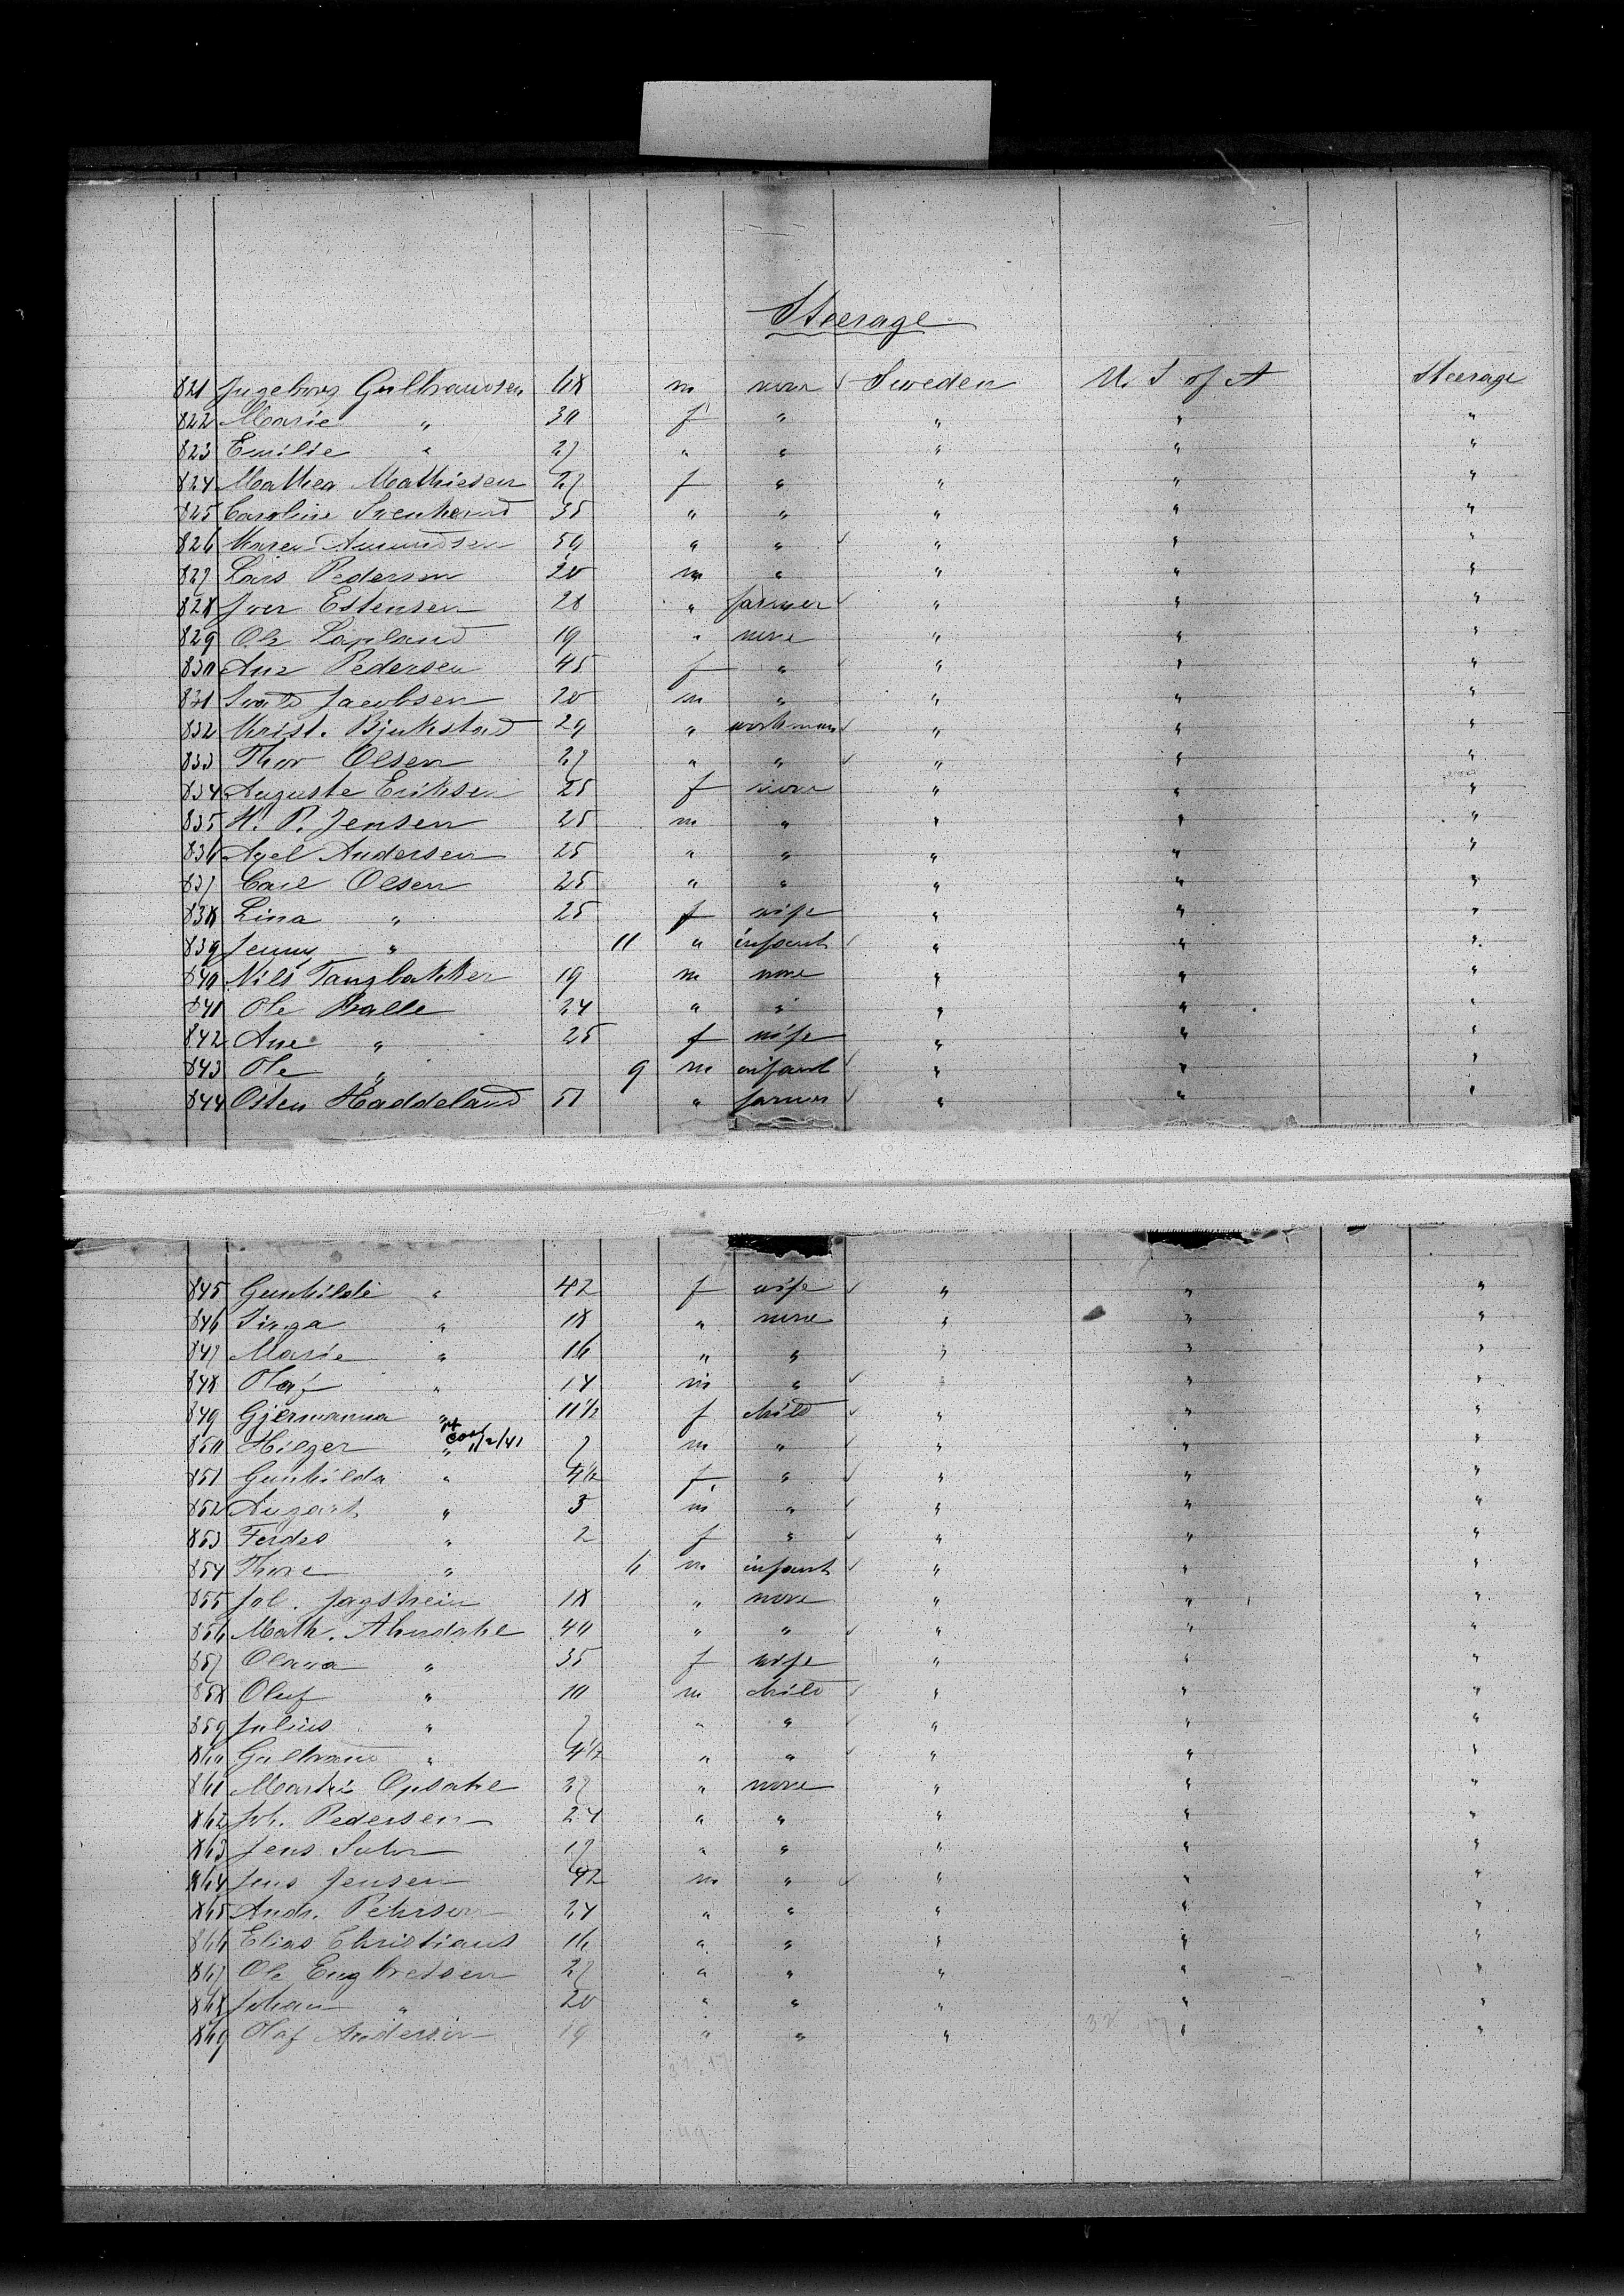 Steerage
821 Ingeborg Gulbrandsen 68 m none ✓ Sweden U. S of A Steerage
822 Marie " 30 f " " " "
823 Emilie " 27 " " " " "
824 Mathea Mathiesen 27 f " " " "
825 Caroline 35 " " " " "
826 Maren Amundsen 50 " " ✓ " " "
827 Lars Pedersen 20 m " " " "
828 Iver Estensen 28 " farmer ✓ " " "
829 Ole Lapland 19 " none " " "
830 Ane Pedersen 45 f " ✓ " " "
831 Jacobsen 20 m " " " "
832 Krist. Bjukstad 29 " workman ✓ " " "
833 Thor Olsen 27 " " ✓ " " "
834 Auguste Eriksen 25 f none " " "
835 H. P. Jensen 25 m " " " "
836 Axel Andersen 25 " " " " "
837 Carl Olsen 25 " " " " "
838 Lina " 25 f wife " " "
839 Jenny " 11 " infant ✓ " " "
840 Nils Tangbakker 19 m none " " "
841 Ole Balle 24 " " " " "
842 Ane " 25 f wife " " "
843 Ole " 9 m infant ✓ " " "
844 Osten Haddeland 51 " farmer ✓ " " "
845 Gunhilde " 42 f wife ✓ " " "
846 Singa " 18 " none " " "
847 Marie " 16 " " " " "
848 Olaf " 14 m " ✓ " " "
849 Gjermanna " 11 1/2 f child ✓ " " "
850 Hilger " 7 m " ✓ " " "
851 Gunhilda " 4 1/2 f " ✓ " " "
852 Augart " 3 m " ✓ " " "
853 Ferdes " 2 f " ✓ " " "
854 Thore " 6 m infant ✓ " " "
855 Jol. Jagstrein 18 " none " " "
856 Math. 40 " " ✓ " " "
857 Olava " 35 f wife " " "
858 Oluf " 10 m child ✓ " " "
859 Julius " 7 " " ✓ " " "
860 Gulbrand " 4 1/2 " " ✓ " " "
861 Opsahl 27 " none " " "
862 Joh. Pedersen 24 " " " " "
863 Jens Suhr 17 " " " " "
864 Jens Jensen 42 m " ✓ " " "
865 Andr. Peterson 24 " " " " "
866 Elias Christians 16 " " " " "
867 Ole Engbretsen 27 " " " " "
868 Johan " 20 " " " " "
869 Olaf Andersen 19 " " " " "